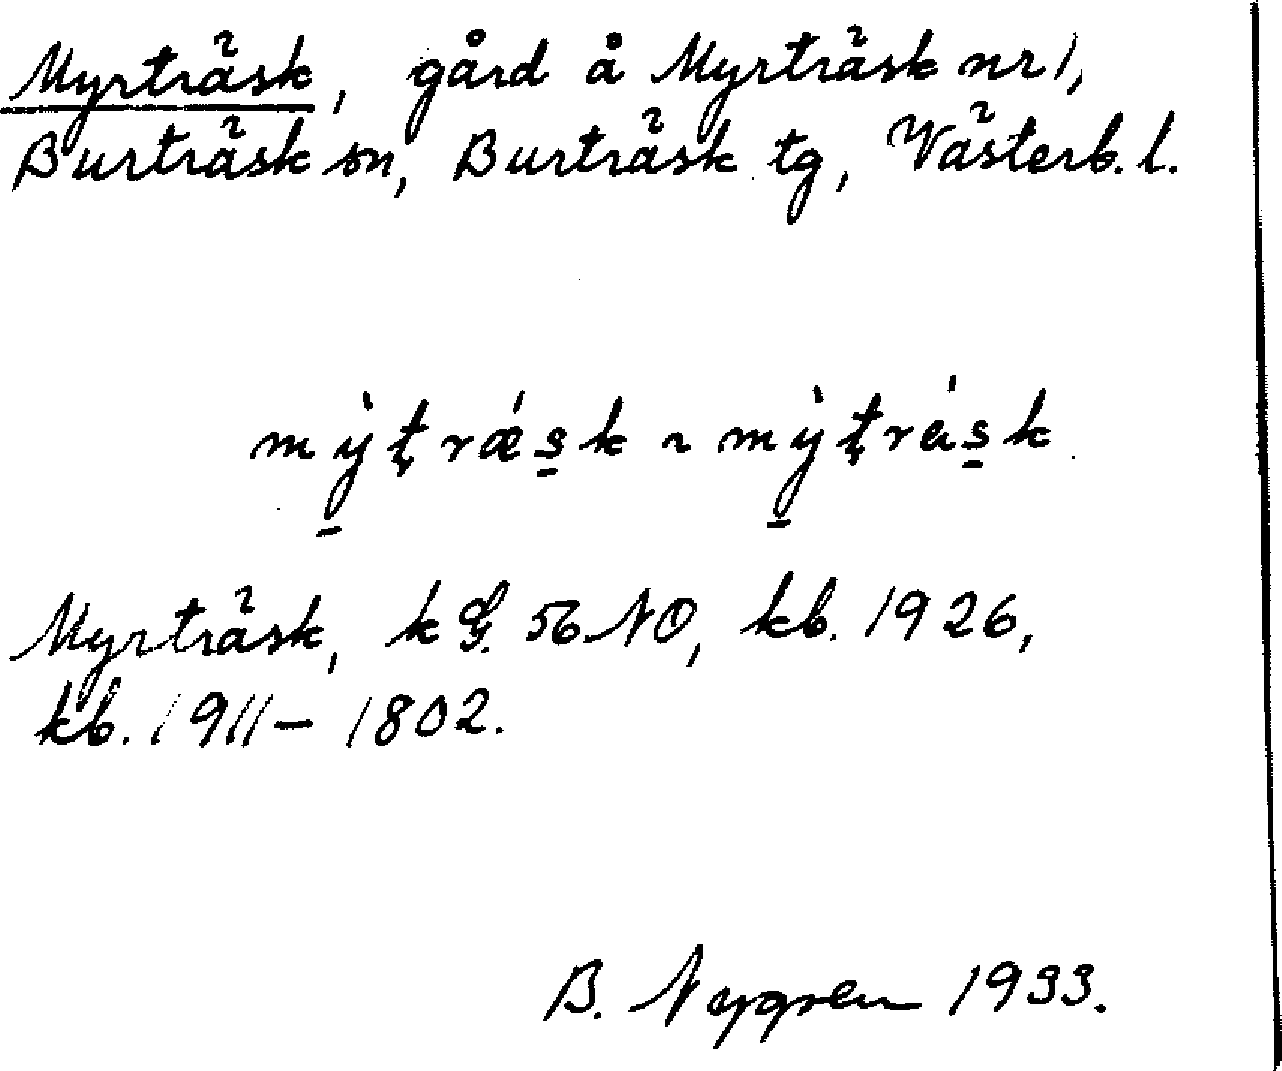 Myrträsk, gård å Myrträsk nr 1,
Burträsk sn, Burträsk tg, Västerb. l.
mỳ̠ʈrǽs̠k ~ mỳ̠ʈrás̠k
Myrträsk, kG. 56 NO, kb. 1926,
kb. 1911– 1802.
B. Nygren 1933.